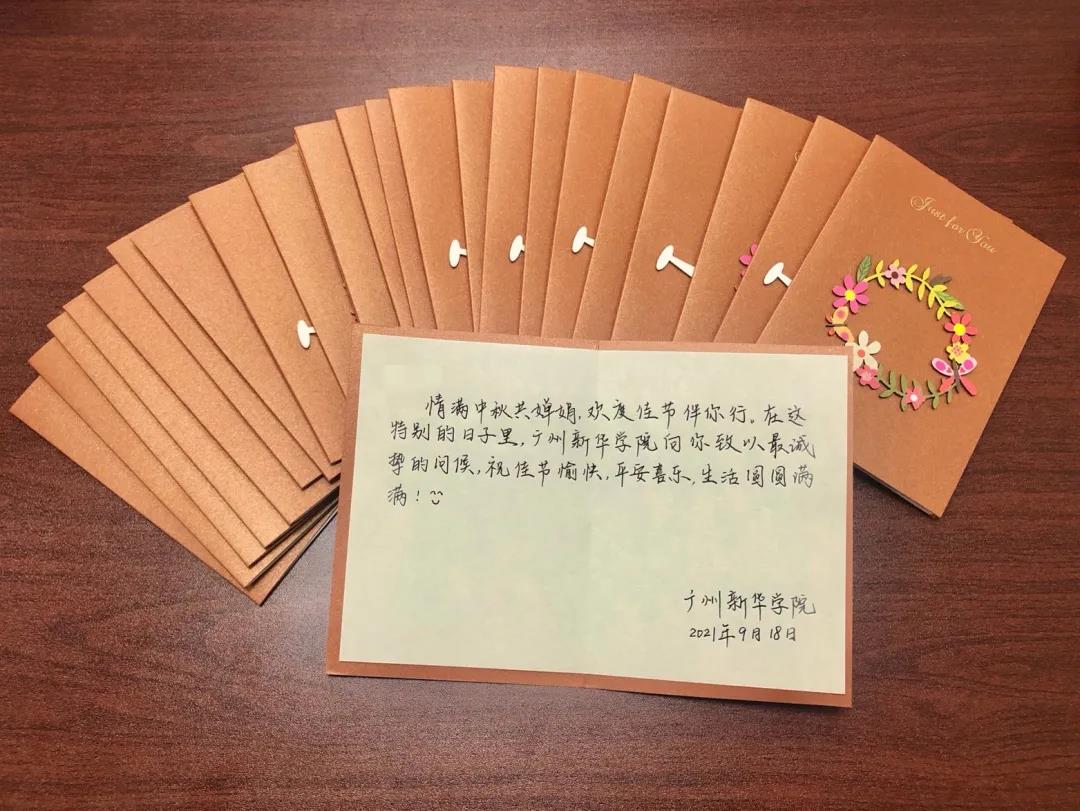 Just for You
情满中秋共婵娟,欢度佳节伴你行。在这
特别的日子里,广州新华学院向你致以最诚
挚的问候,祝佳节愉快,平安喜乐,生活圆圆满
满!
广州新华学院
2021年9月18日